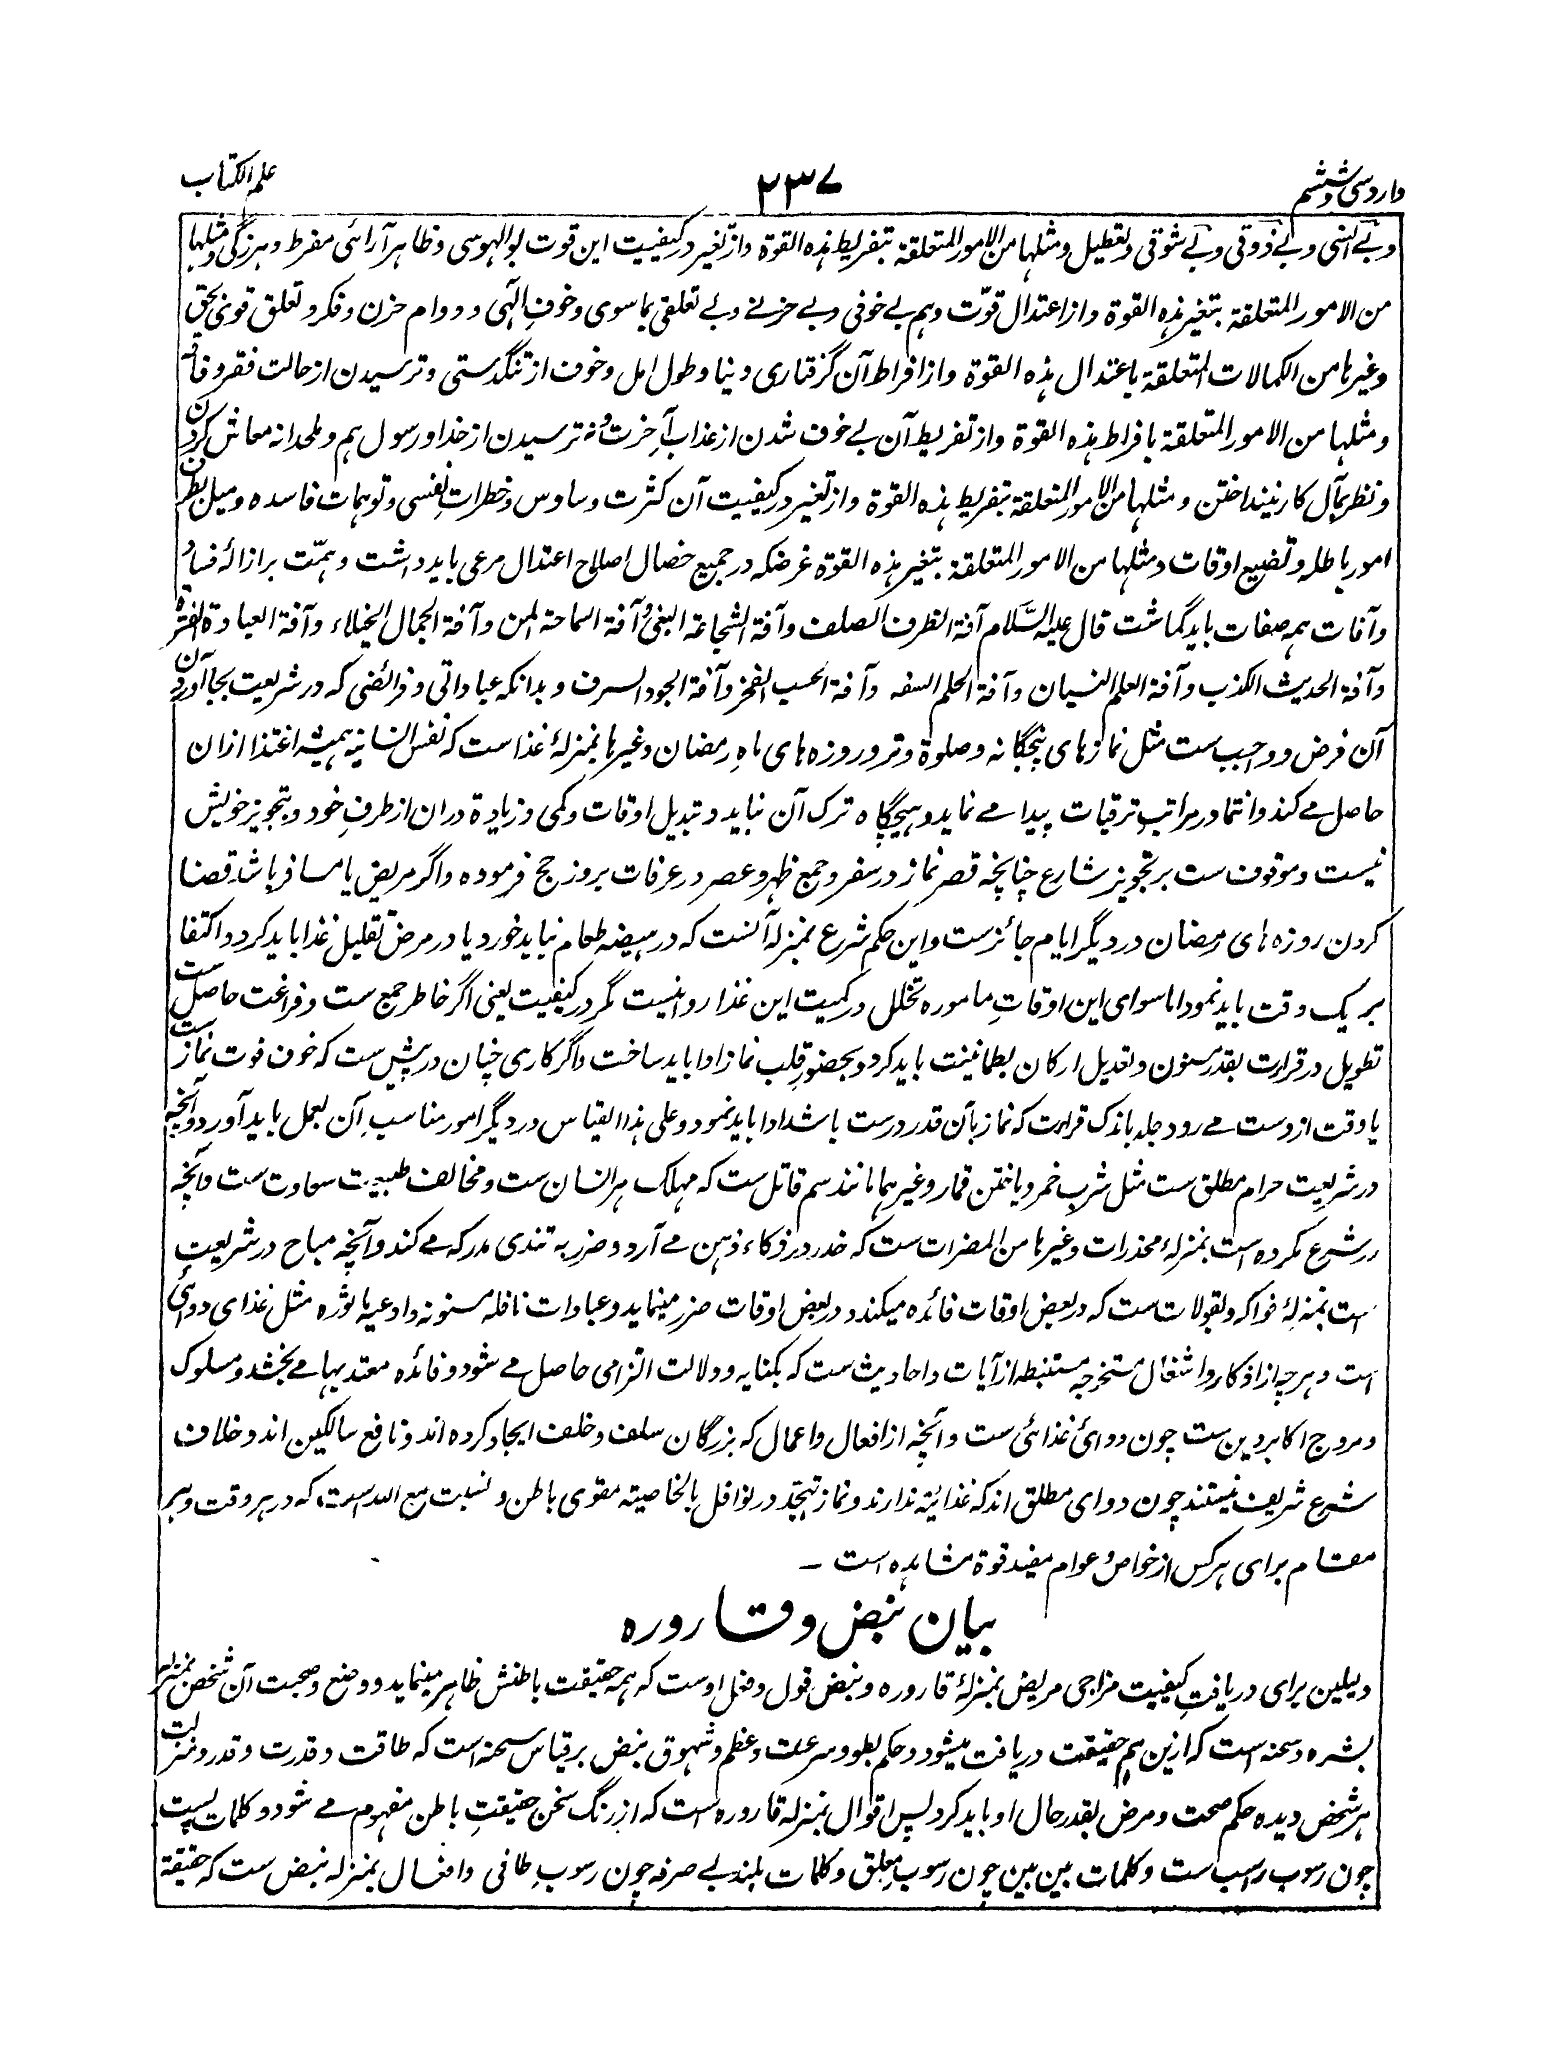 وارد سی و ششم
۲۳۷
علم الکتاب
و بے انسی و بے ذوقی و بے شوقی و تعطیل و مثلہا من الامور المتعلقۃ بتفریط ہذہ القوۃ و از تغیر در کیفیت این قوت بوالہوسی و ظاہر آرائی مفرط و ہرزگی و مثلہا
من الامور المتعلقۃ بتغیر ہذہ القوۃ و از اعتدال قوّت وہم بے خوفی و بے حزنے و بے تعلقی بما سوی و خوفِ الٰہی و دوام حزن و فکر و تعلق قوی بحق
و غیرہا من الکمالات المتعلقۃ باعتدال ہذہ القوۃ و از افراط آن گرفتاری دنیا و طول امل و خوف از تنگدستی و ترسیدن از حالت فقر و فاقہ
و مثلہا من الامور المتعلقۃ بافراط ہذہ القوۃ و از تفریط آن بے خوف شدن از عذاب آخرت و نہ ترسیدن از خدا و رسول ہم و ملحدانہ معاش کردن
و نظر بمآل کار نینداختن و مثلہا من الامور المتعلقۃ بتفریط ہذہ القوۃ و از تغیر در کیفیت آن کثرت وساوس و خطراتِ نفسی و توہمات فاسدہ و میل بطرف
امور باطلہ و تضییع اوقات و مثلہا من الامور المتعلقۃ بتغیر ہذہ القوۃ غرضکہ در جمیع خصال اصلاح اعتدال مرعی باید داشت و ہمّت بر ازالۂ فساد
و آفات ہمہ صفات باید گماشت قال علیہ السَّلام آفۃ الظرف الصلف و آفۃ الشجاعۃ البغی و آفۃ السماحۃ المن و آفۃ الجمال الخیلاء و آفۃ العبادۃ الفترۃ
و آفۃ الحدیث الکذب و آفۃ العلم النسیان و آفۃ الحلم السفہ و آفۃ الحسب الفخر و آفۃ الجود السرف و بدانکہ عباداتی و فرائضی کہ در شریعت بجا آوردن
آن فرض و واجب ست مثل نمازہای پنجگانہ و صلوۃ وتر و روزہ ہای ماہِ رمضان و غیرہا بمنزلۂ غذا ست کہ نفس انسانیہ ہمیشہ اغتذا ازان
حاصل مے کند و انتما در مراتبِ ترقیات پیدا مے نماید و ہیچگاہ ترک آن نباید و تبدیل اوقات و کمی و زیادۃ دران از طرفِ خود و بتجویز خویش
نیست و موقوف ست بر تجویز شارع چنانچہ قصر نماز در سفر و جمع ظہر و عصر در عرفات بروز حج فرمودہ و اگر مریض یا مسافر باشد قضا
کردن روزہ ہای رمضان در دیگر ایام جائز ست و این حکم شرع بمنزلہ آنست کہ در ہیضہ طعام نباید خورد یا در مرض تقلیل غذا باید کرد و اکتفا
بر یک وقت باید نمود اما سوای این اوقاتِ مامورہ تخلل در کمیت این غذا روا نیست مگر در کیفیت یعنی اگر خاطر جمع ست و فراغت حاصل ست
تطویل در قراءت بقدر مسنون و تعدیل ارکان بطمانینت باید کرد و بحضورِ قلب نماز ادا باید ساخت و اگر کاری چنان در پیش ست کہ خوف فوت نماز ست
یا وقت از دست مے رود جلد باندک قراءت کہ نماز بآن قدر درست باشد ادا باید نمود و علی ہذا القیاس در دیگر امور مناسبِ آن بعمل باید آورد و آنچہ
در شریعت حرام مطلق ست مثل شربِ خمر و باختن قمار و غیرہما مانند سم قاتل ست کہ مہلک ہر انسان ست و مخالف طبیعت سعادت ست و آنچہ
در شرع مکروہ است بمنزلۂ مخدرات و غیرہا من المضرات ست کہ خدر در ذکاء ذہن مے آرد و ضرر بہ تندی مدرکہ مے کند و آنچہ مباح در شریعت
است بمنزلۂ فواکہ و بقولات ست کہ در بعض اوقات فائدہ میکند و در بعض اوقات ضرر مینماید و عبادات نافلہ مسنونہ و ادعیہ ماثورہ مثل غذای دوائی
است و ہر چہ از اذکار و اشغال مستخرجہ مستنبطہ از آیات و احادیث ست کہ بکنایہ و دلالت التزامی حاصل مے شود و فائدہ معتد بہا مے بخشد و مسلوک
و مروج اکابر دین ست چون دوائ غذائی ست و آنچہ از افعال و اعمال کہ بزرگان سلف و خلف ایجاد کردہ اند و نافع سالکین اند و خلاف
شرع شریف نیستند چون دوای مطلق اند کہ غذائیۃ ندارند و نماز تہجّد در نوافل بالخاصیتہ مقوی باطن و نسبت مع اللہ است کہ در ہر وقت و ہر
مقام برای ہر کس از خواص و عوام مفید قوۃ مشاہدہ است ـ
بیان نبض و قارورہ
دلیلین برای دریافت کیفیت مزاجی مریض بمنزلۂ قارورہ و نبض قول و فعل اوست کہ ہمہ حقیقت باطنش ظاہر مینماید و وضع و صحبت آن شخص بمنزلہ
بشرہ و سحنہ است کہ ازین ہم حقیقت دریافت میشود و حکم بطو و سرعت و عظم و شہوق نبض بر قیاس سحنہ است کہ طاقت و قدرت و قدر و منزلت
ہر شخص دیدہ حکم صحت و مرض بقدر حال او باید کرد پس اقوال بمنزلہ قارورہ است کہ از رنگ سخن حقیقتِ باطن مفہوم مے شود و کلمات پست
چون رسوب راسب ست و کلمات بین بین چون رسوبِ معلق و کلمات بلند بے صرفہ چون رسوبِ طافی و افعال بمنزلہ نبض ست کہ حقیقۃ